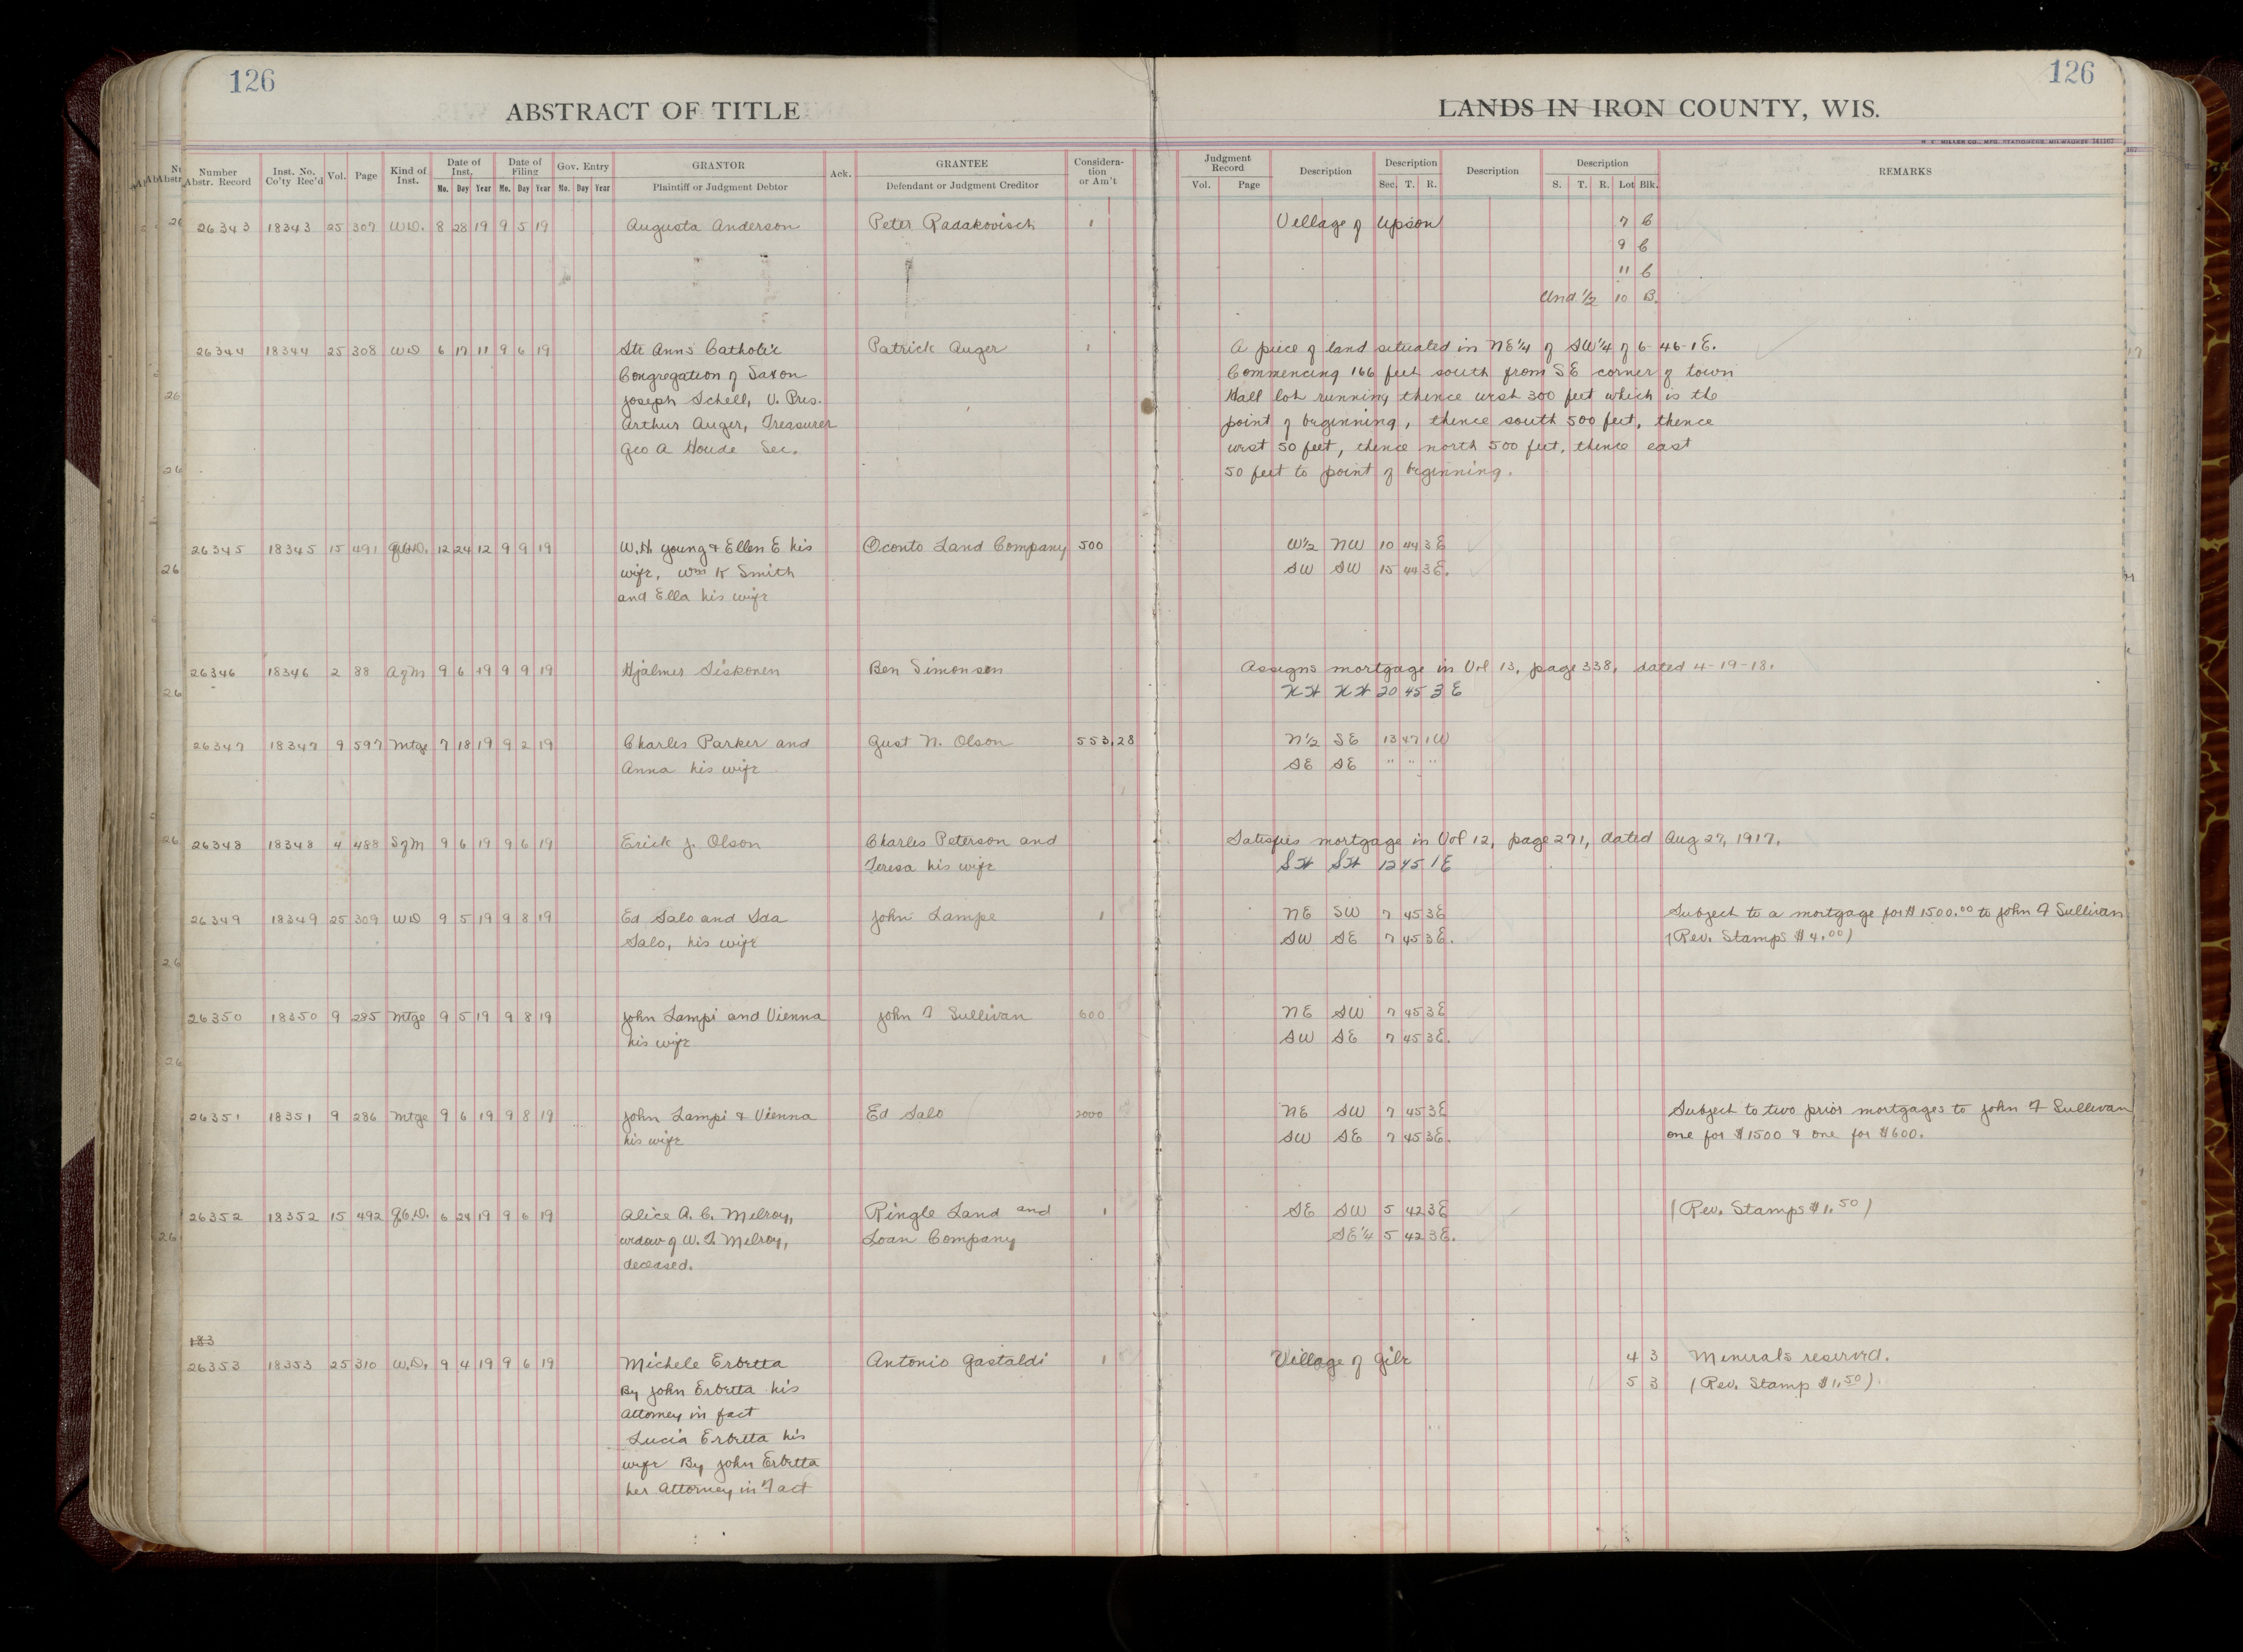 126
126
ABSTRACT OF TITLE
LANDS IN IRON COUNTY, WIS.
H. C. MILLER CO., MFG. STATIONERS, MILWAUKEE 141167
Number Abstr. Record Inst. No. Co'ty Rec'd Vol. Page Kind of Inst. Date of Inst. Mo. Day Year Date of Filing Mo. Day Year Gov. Entry Mo. Day Year GRANTOR Plaintiff or Judgment Debtor Ack. GRANTEE Defendant or Judgment Creditor Considera- tion or Am't
Judgment Record Vol. Page Description Description Sec. T. R. Description Description S. T. R. Lot Blk. REMARKS
26343 18343 25 307 W.D. 8 28 19 9 5 19 Augusta Anderson Peter Radakovisch 1 Village of Upson 7 6
9 6
11 6
Und. 1/2 10 B.
26344 18344 25 308 WD 6 17 11 9 6 19 Ste Anns Catholic Patrick Auger 1 A piece of land situated in NE1/4 of SW1/4 of 6-46-1E.
Congregation of Saxon Commencing 166 feet south from SE corner of town
Joseph Schell, V. Pres. Hall lot running thence west 300 feet which is the
Arthur Auger, Treasurer point of beginning, thence south 500 feet, thence
Geo A Houde Sec. west 50 feet, thence north 500 feet, thence east
50 feet to point of beginning.
26345 18345 15 491 12 24 12 9 9 19 W.H. Young & Ellen E his Oconto Land Company 500 W1/2 NW 10 44 3E
wife, Wm K Smith SW SW 15 44 3E.
and Ella his wife
26346 18346 2 88 AofM 9 6 19 9 9 19 Hjalmer Siskonen Ben Simonson Assigns mortgage in Vol 13, page 338, dated 4-19-18.
20 45 3 E
26347 18347 9 597 Mtge 7 18 19 9 2 19 Charles Parker and Gust N. Olson 553.28 N1/2 SE 13 47 1W
Anna his wife SE SE " " "
26348 18348 4 488 SofM 9 6 19 9 6 19 Erick J. Olson Charles Peterson and Satisfies mortgage in Vol 12, page 271, dated Aug 27, 1917.
Teresa his wife SW SW 12 45 1E
26349 18349 25 309 WD 9 5 19 9 8 19 Ed Salo and Ida John Lampe 1 NE SW 7 45 3E Subject to a mortgage for $1500.00 to John F Sullivan
Salo, his wife SW SE 7 45 3E. (Rev. Stamps $4.00)
26350 18350 9 285 Mtge 9 5 19 9 8 19 John Lampi and Vienna John F Sullivan 600 NE SW 7 45 3E
his wife SW SE 7 45 3E.
26351 18351 9 286 Mtge 9 6 19 9 8 19 John Lampi & Vienna Ed Salo 2000 NE SW 7 45 3E Subject to two prior mortgages to John F Sullivan
his wife SW SE 7 45 3E. one for $1500 & one for $600.
26352 18352 15 492 Q.C.D. 6 24 19 9 6 19 Alice A. C. Melroy, Ringle Land and 1 SE SW 5 42 3E (Rev. Stamps $1.50)
widow of W. T. Melroy, Loan Company SE1/4 5 42 3E.
deceased.
183
26353 18353 25 310 W.D. 9 4 19 9 6 19 Michele Erbetta Antonio Gastaldi 1 Village of Gile 4 3 Minerals reserved.
By John Erbetta his 5 3 (Rev. Stamp $1.50)
Attorney in fact
Lucia Erbetta his
wife By John Erbetta
her Attorney in Fact